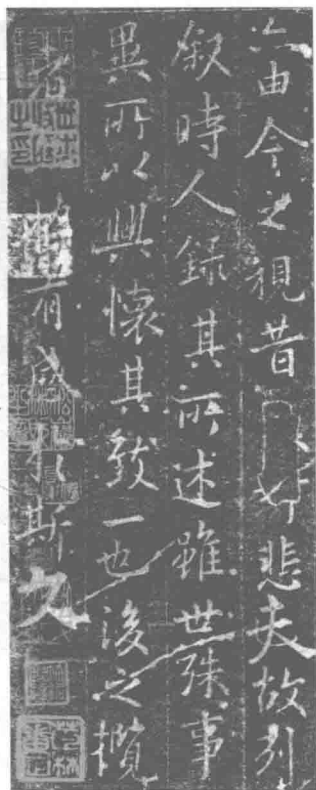 亦由今之視昔悲夫故列
叙時人錄其所述雖世殊事
異所以興懷其致一也後之攬
者將有感於斯文